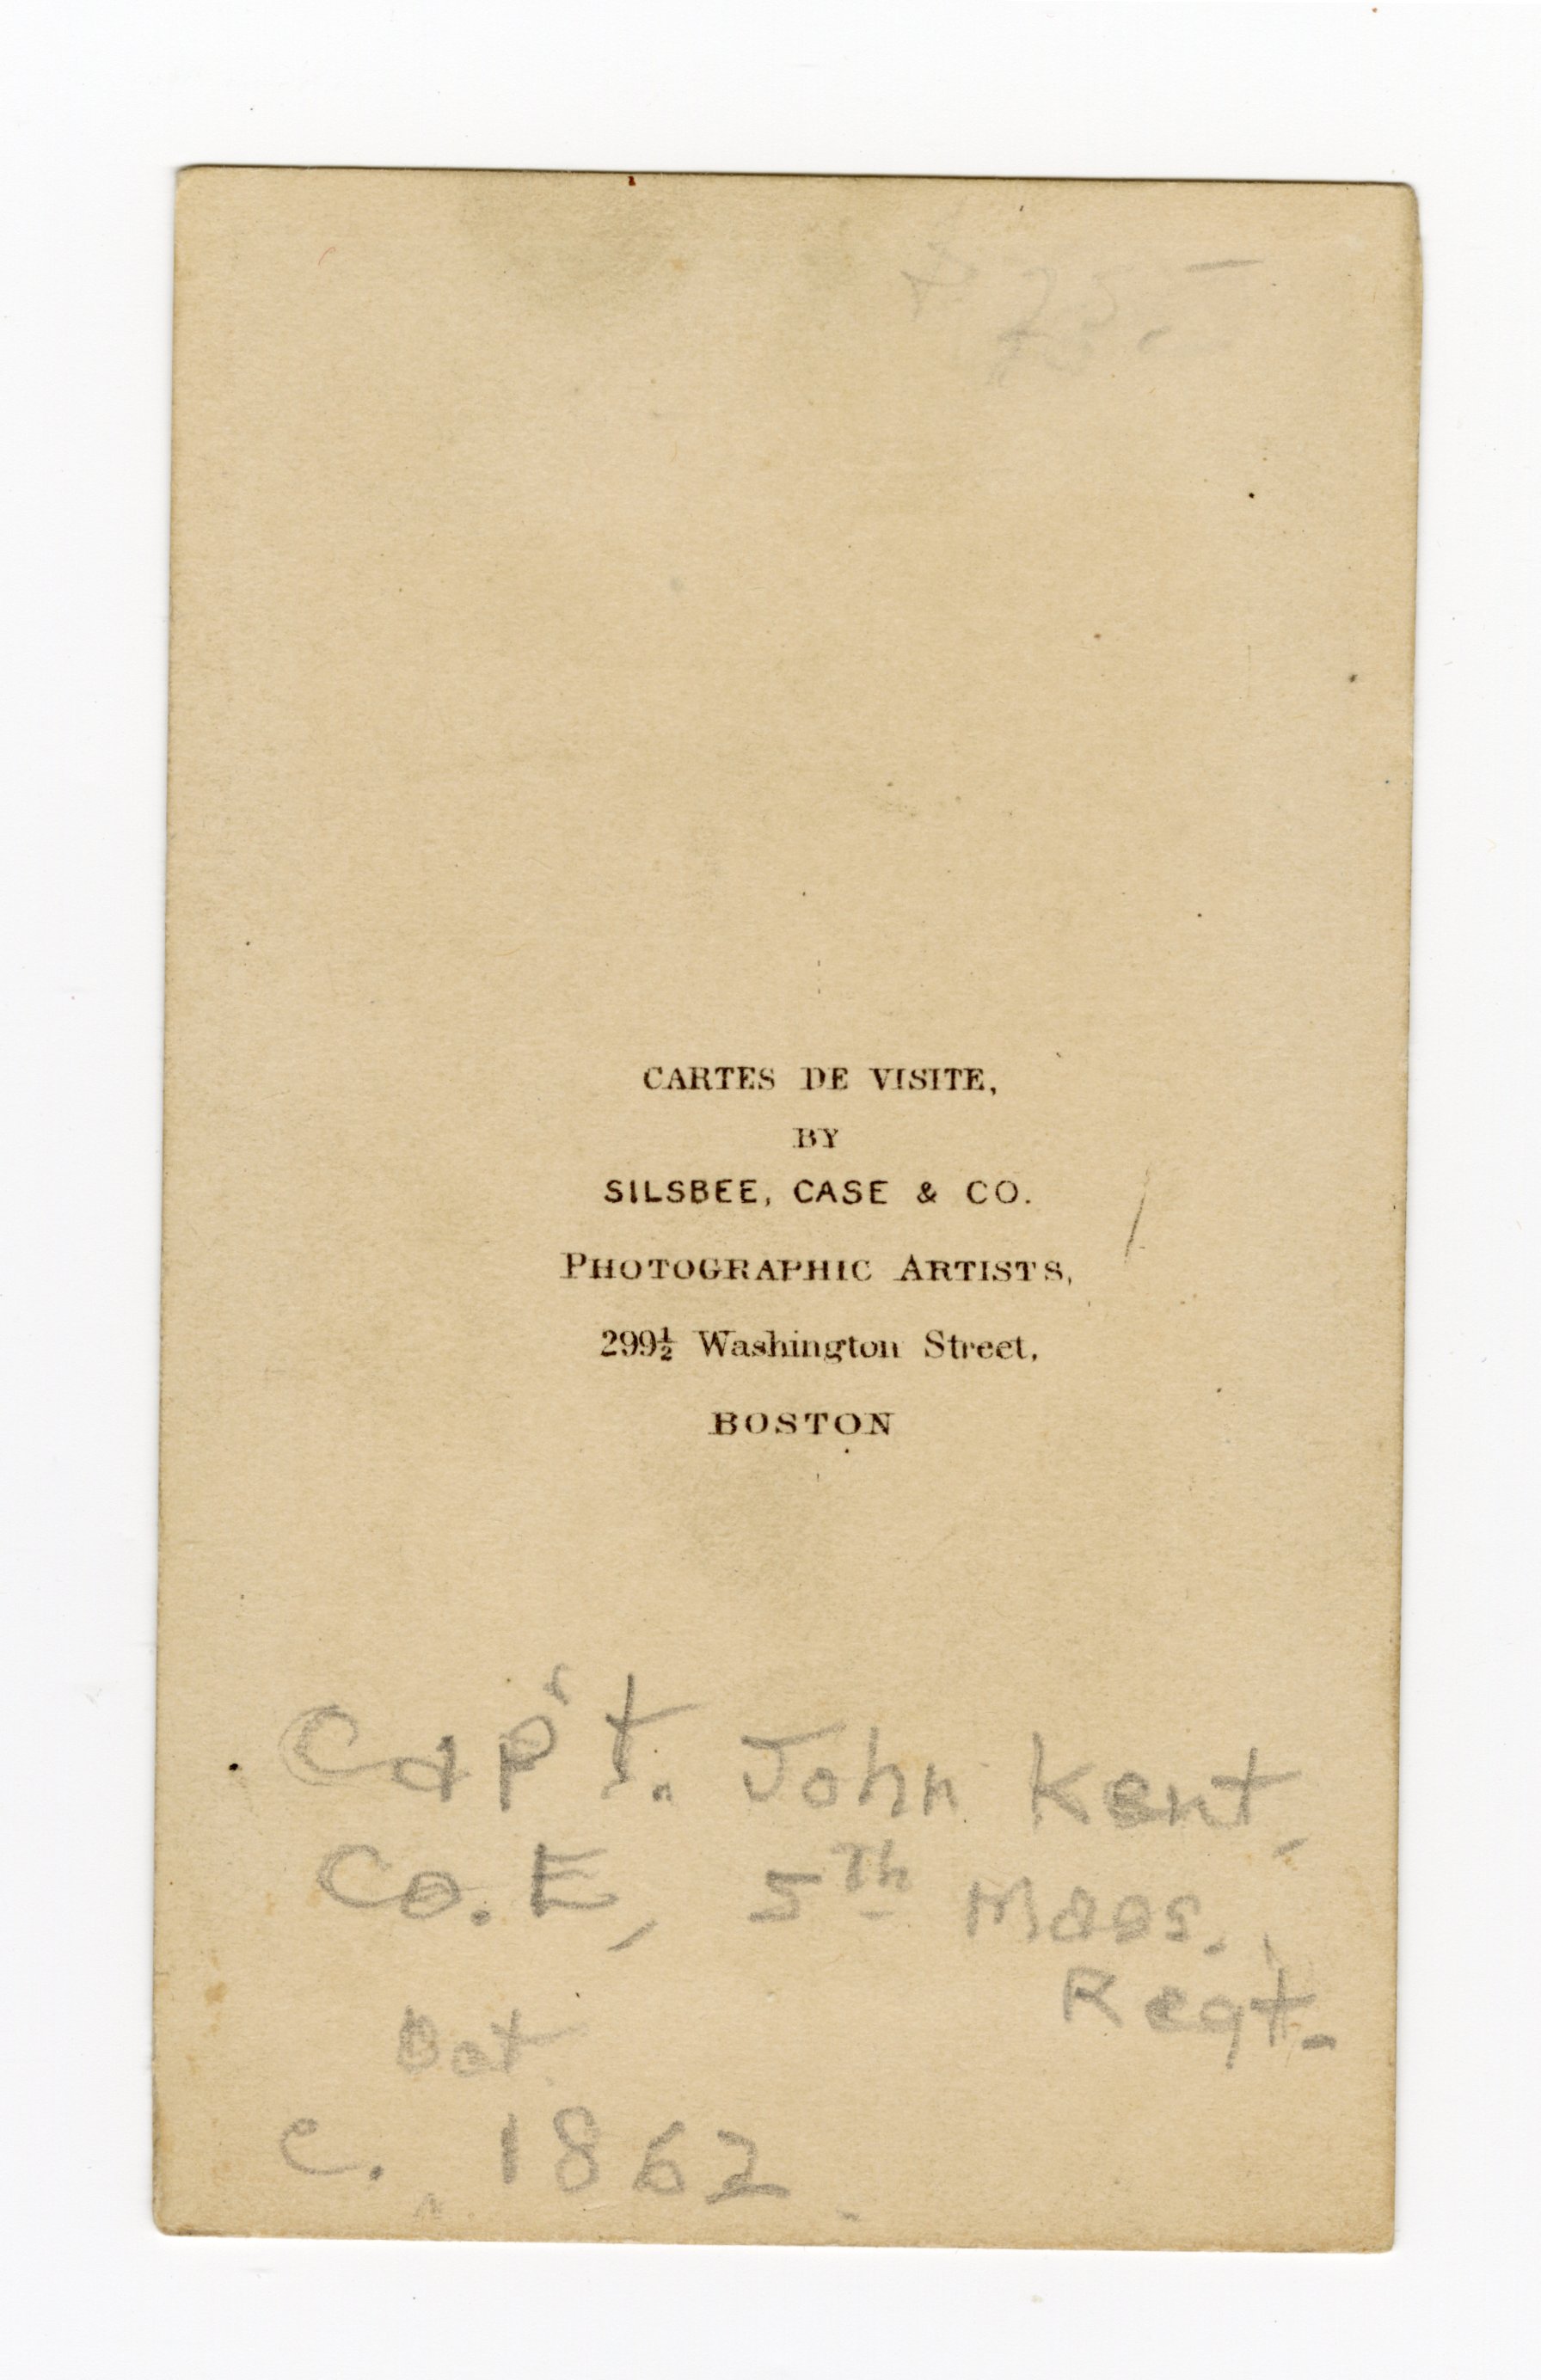 25.-
CARTES DE VISITE,
BY
SILSBEE, CASE & CO.
PHOTOGRAPHIC ARTISTS,
299½ Washington Street,
BOSTON
Cap't. John Kent,
Co. E, 5Th Mass.
Regt.
c. 1862